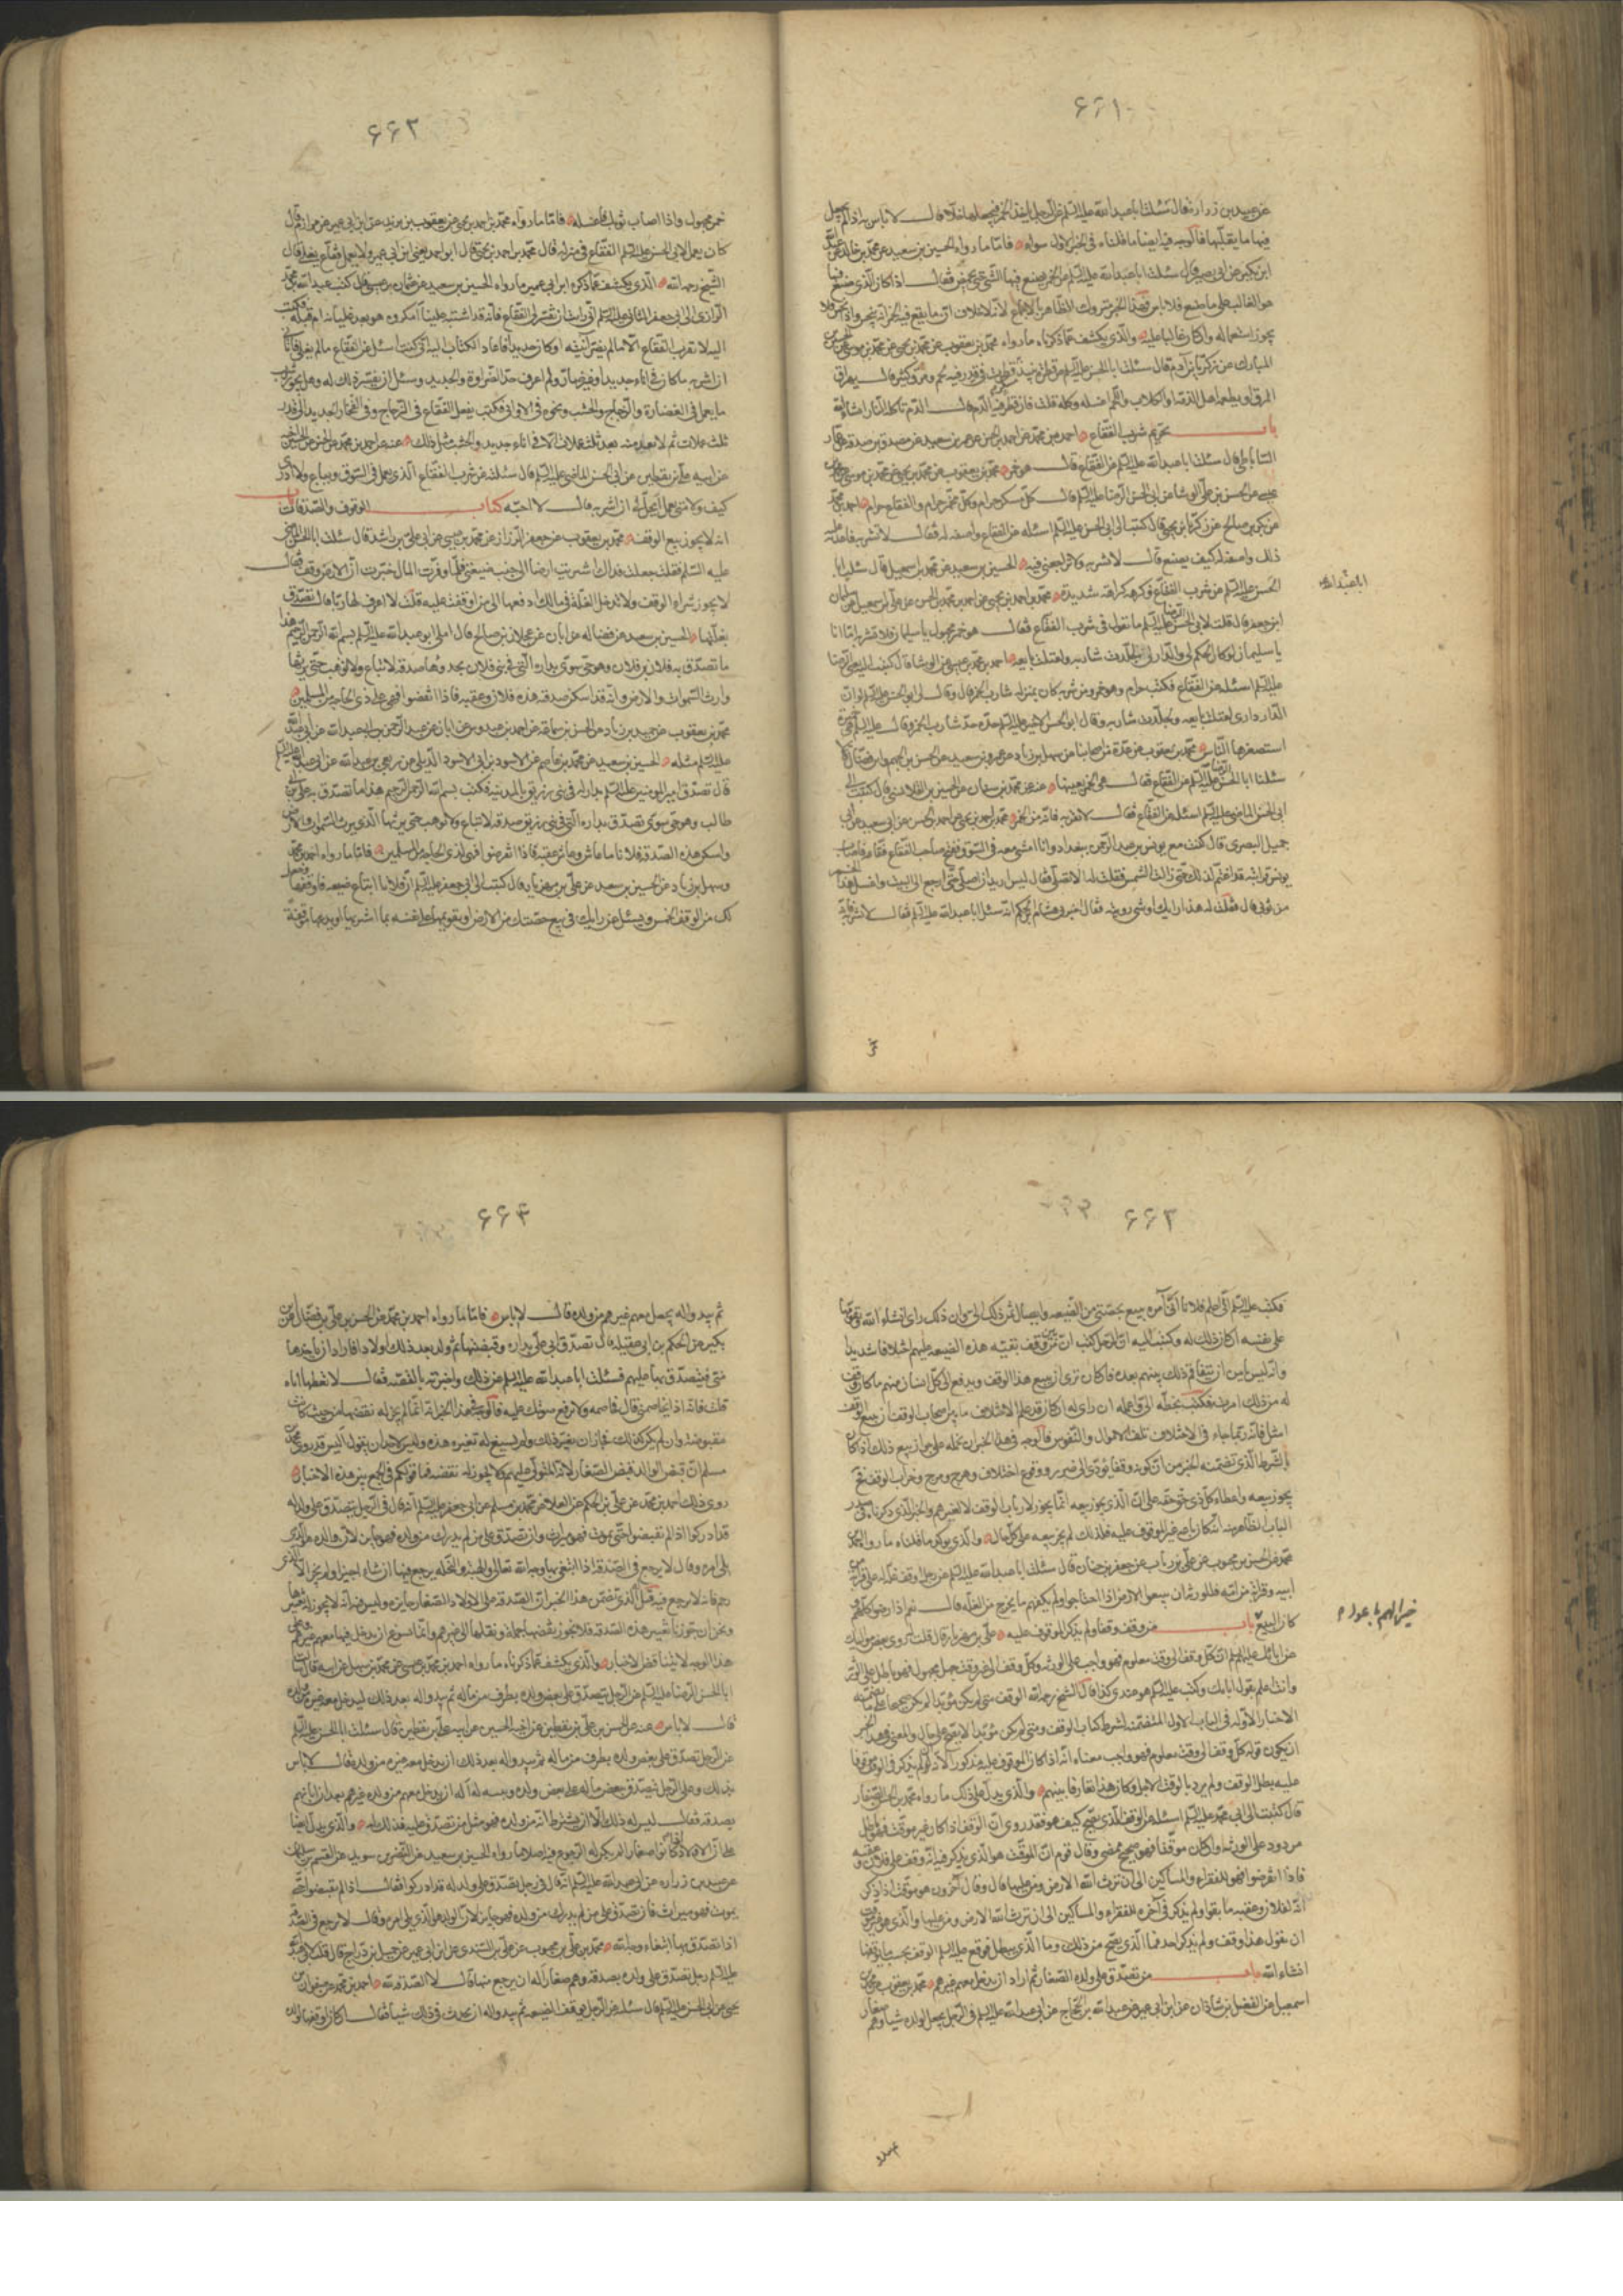 ٦٦١
عن عبيد بن زرارة قال سئلت ابا عبدالله عليه السلم عن الرجل ياخذ الخمر فيجعلها خلا قال لا باس به اذا لم يجعل
فيها ما يقلبها فالوجه فيه ايضا ما قلناه في الخبر الاول سواء فاما ما رواه الحسين بن سعيد عن محمد بن خالد عن عبدالله
ابن بكير عن ابي بصير قال سئلت ابا عبدالله عليه السلم عن الخمر يصنع فيها الشئ حتى تحمض فقال اذا كان الذي صنع فيها
هو الغالب على ما صنع فلا باس فهذا الخبر متروك الظاهر بالاجماع لانه لا خلاف ان ما يقع فيه الخمر انه ينجس واذا نجس فلا
يجوز استعماله وان كان غالبا عليه والذي يكشف عما ذكرناه ما رواه محمد بن يعقوب عن محمد بن يحيى عن محمد بن موسى عن الحسن بن
المبارك عن زكريا بن آدم قال سئلت ابا الحسن عليه السلم عن قطرة نبيذ قطرت في قدر فيه لحم ومرق كثير قال يهراق
المرق او يطعمه اهل الذمة او الكلاب واللحم اغسله وكله قلت فان قطر فيها الدم قال الدم تاكله النار انشاء الله
باب تحريم شرب الفقاع احمد بن محمد عن احمد بن الحسن عن عمرو بن سعيد عن مصدق بن صدقة عن عمار
الساباطي قال سئلت ابا عبدالله عليه السلم عن الفقاع قال هو خمر محمد بن يعقوب عن محمد بن يحيى عن محمد بن موسى عن محمد بن
عيسى عن الحسن بن علي الوشا عن ابي الحسن الرضا عليه السلم قال كل مسكر حرام وكل مخمر حرام والفقاع حرام احمد بن محمد
عن بكر بن صالح عن زكريا بن يحيى قال كتبت الى ابي الحسن عليه السلم اسئله عن الفقاع واصفه له فقال لا تشربه فاعدت عليه
ذلك واصفه له كيف يصنع قال لا تشربه ولا تراجعني فيه الحسين بن سعيد عن محمد بن اسمعيل قال سئلت ابا
الحسن عليه السلم عن شرب الفقاع فكرهه كراهة شديدة محمد بن احمد بن يحيى عن احمد بن محمد بن الحسن عن علي بن اسمعيل عن سليمان
ابن جعفر قال قلت لابي الحسن الرضا عليه السلم ما تقول في شرب الفقاع فقال هو خمر مجهول يا سليمان فلا تشربه اما انا
يا سليمان لو كان الحكم لي والدار لي لجلدت شاربه ولقتلت بايعه احمد بن محمد بن عيسى عن الوشا قال كتبت اليه يعني الرضا
عليه السلم اسئله عن الفقاع فكتب حرام وهو خمر ومن شربه كان بمنزلة شارب الخمر قال وقال لي ابو الحسن عليه السلم لو ان
الدار داري لقتلت بايعه ولجلدت شاربه وقال ابو الحسن الاخير عليه السلم حده حد شارب الخمر وقال عليه السلم هي خمرة
استصغرها الناس محمد بن يعقوب عن عدة من اصحابنا عن سهل بن زياد عن عمرو بن سعيد عن الحسن بن الجهم وابن فضال قالا
سئلنا ابا الحسن عليه السلم عن الفقاع فقال هي الخمر بعينها عنه عن محمد بن سنان عن الحسين القلانسي قال كتبت الى
ابي الحسن الماضي عليه السلم اسئله عن الفقاع فقال لا تقربه فانه من الخمر محمد بن احمد بن يحيى عن احمد بن الحسن عن ابي سعيد عن ابي
جميل البصري قال كنت مع يونس بن عبدالرحمن ببغداد وانا امشي معه في السوق ففتح صاحب الفقاع فقاعه فاصاب
يونس فرايته قد اغتم لذلك حتى زالت الشمس فقلت له الا تصلي فقال ليس اريد ان اصلي حتى ارجع الى البيت واغسل هذا الخمر
من ثوبي قال فقلت له هذا رايك او شئ رويته فقال اخبرني هشام بن الحكم انه سئل ابا عبدالله عليه السلم فقال لا تشربه فانه
ابا عبدالله
خمر
٦٦٣
خمر مجهول واذا اصاب ثوبك فاغسله فاما ما رواه محمد بن احمد بن يحيى عن يعقوب بن يزيد عن ابن ابي عمير عن مرازم قال
كان يعمل لابي الحسن عليه السلم الفقاع في منزله قال محمد بن احمد بن يحيى قال ابو احمد يعني ابن ابي عمير ولا يعمل فقاع يغلي قال
الشيخ رحمه الله الذي يكشف عما ذكره ابن ابي عمير ما رواه الحسين بن سعيد عن عثمان بن عيسى قال كتب عبدالله بن محمد
الرازي الى ابي جعفر الثاني عليه السلم ان رايت ان تفسر لي الفقاع فانه قد اشتبه علينا امكروه هو بعد غليانه ام قبله فكتب
اليه لا تقرب الفقاع الا ما لم يضر آنيته او كان جديدا فاعاد الكتاب اليه اني كتبت اسئل عن الفقاع ما لم يغل فاتاني
ان اشربه ما كان في اناء جديد او غير ضار ولم اعرف حد الضراوة والجديد وسئل ان يفسر ذلك له وهل يجوز شرب
ما يعمل في الغضارة والزجاج والخشب ونحوه في الاواني فكتب يفعل الفقاع في الزجاج وفي الفخار الجديد الى قدر
ثلث عملات ثم لا تعد منه بعد ثلث عملات الا في اناء جديد والخشب مثل ذلك عنه عن احمد بن محمد عن الحسن عن الحسين
عن ابيه علي بن يقطين عن ابي الحسن الماضي عليه السلم قال سئلته عن شرب الفقاع الذي يعمل في السوق ويباع ولا ادري
كيف ولا متى عمل ايحل لي ان اشربه قال لا احبه كتاب الوقوف والصدقات باب
انه لا يجوز بيع الوقف محمد بن يعقوب عن جعفر الرزاز عن محمد بن عيسى عن ابي علي بن راشد قال سئلت ابا الحسن
عليه السلم فقلت جعلت فداك اشتريت ارضا الى جنب ضيعتي فلما وفرت المال خبرت ان الارض وقف فقال
لا يجوز شراء الوقف ولا تدخل الغلة في مالك ادفعها الى من اوقفت عليه قلت لا اعرف لها ربا قال تصدق
بغلتها الحسين بن سعيد عن فضالة عن ابان عن عجلان ابي صالح قال املى ابو عبدالله عليه السلم بسم الله الرحمن الرحيم هذا
ما تصدق به فلان بن فلان وهو حي سوي بداره التي في بني فلان بحدودها صدقة لا تباع ولا توهب حتى يرثها
وارث السموات والارض وانه قد اسكن صدقته هذه فلان وعقبه فاذا انقضوا فهي على ذي الحاجة من المسلمين
محمد بن يعقوب عن حميد بن زياد عن الحسن بن سماعة عن احمد بن عبدوس عن ابان عن عبدالرحمن بن ابي عبدالله عن ابي عبدالله
عليه السلم مثله الحسين بن سعيد عن محمد بن عاصم عن الاسود بن ابي الاسود الدئلي عن ربعي بن عبدالله عن ابي عبدالله عليه السلم
قال تصدق امير المؤمنين عليه السلم بدار له في بني زريق بالمدينة فكتب بسم الله الرحمن الرحيم هذا ما تصدق به علي بن ابي
طالب وهو حي سوي تصدق بداره التي في بني زريق صدقة لا تباع ولا توهب حتى يرثها الذي يرث السموات والارض
واسكن هذه الصدقة فلانا ما عاش وعاش عقبه فاذا انقرضوا فهي لذي الحاجة من المسلمين فاما ما رواه احمد بن محمد
وسهل بن زياد عن الحسين بن سعيد عن علي بن مهزيار قال كتبت الى ابي جعفر عليه السلم ان فلانا ابتاع ضيعة فاوقفها وجعل
لك من الوقف الخمس ويسئل عن رايك في بيع حصتك من الارض او تقويمها على نفسه بما اشتريها او يدعها موقفة
٦٦٢
فكتب عليه السلم الي اعلم فلانا اني آمره ببيع حصتي من الضيعة وايصال ثمن ذلك الي وان ذلك رايي انشاء الله او يقومها
على نفسه ان كان ذلك اوفق له وكتبت اليه ان الرجل كتب ان بين من وقف بقية هذه الضيعة عليهم اختلافا شديدا
وانه ليس يامن ان يتفاقم ذلك بينهم بعده فان كان ترى ان يبيع هذا الوقف ويدفع الى كل انسان منهم ما كان وقف
له من ذلك امرته فكتب بخطه الي واعلمه ان رايي له ان كان قد علم الاختلاف ما بين اصحاب الوقف ان بيع الوقف
امثل فانه ربما جاء في الاختلاف تلف الاموال والنفوس فالوجه في هذا الخبر ان نحمله على جواز بيع ذلك اذا كان
بالشرط الذي تضمنه الخبر من ان كونه وقفا يؤدي الى ضرر ووقوع اختلاف وهرج ومرج وخراب الوقف فحينئذ
يجوز بيعه واعطاء كل ذي حق حقه على ان الذي يجوز بيعه انما يجوز لارباب الوقف لا لغيرهم والخبر الذي ذكرناه في صدر
الباب الظاهر منه انه كان باعه غير الموقوف عليه فلذلك لم يجز بيعه على كل حال والذي يؤكد ما قلناه ما رواه احمد بن
محمد عن الحسن بن محبوب عن علي بن رئاب عن جعفر بن حنان قال سئلت ابا عبدالله عليه السلم عن رجل وقف غلة له على قرابته من
ابيه وقرابة من امه فللورثة ان يبيعوا الارض اذا احتاجوا ولم يكفهم ما يخرج من الغلة قال نعم اذا رضوا كلهم و
كان البيع باب من وقف وقفا ولم يذكر الموقوف عليه علي بن مهزيار قال قلت له روى بعض مواليك
عن ابائك عليهم السلم ان كل وقف الى وقت معلوم فهو واجب على الورثة وكل وقف الى غير وقت جهل مجهول فهو باطل على الورثة
وانت اعلم بقول ابائك وكتب عليه السلم هو عندي كذا قال الشيخ رحمه الله الوقف متى لم يكن مؤبدا لم يكن صحيحا على ما تضمنته
الاخبار الاولة في الباب الاول المتضمنة لشرط كتاب الوقف ومتى لم يكن مؤبدا لا يصح على حال والمعنى في هذا الخبر
ان يكون قوله كل وقف الى وقت معلوم فهو واجب معناه انه اذا كان الموقوف عليه مذكورا لانه لو لم يذكر في الوقف موقوفا
عليه بطل الوقف ولم يرد بالوقت الاجل وكان هذا تعارفا بينهم والذي يدل على ذلك ما رواه محمد بن الحسن الصفار
قال كتبت الى ابي محمد عليه السلم اسئله عن الوقف الذي يصح كيف هو فقد روي ان الوقف اذا كان غير موقت فهو باطل
مردود على الورثة واذا كان موقتا فهو صحيح ممضى وقال قوم ان الموقت هو الذي يذكر فيه انه وقف على فلان وعقبه
فاذا انقرضوا فهو للفقراء والمساكين الى ان يرث الله الارض ومن عليها قال وقال آخرون هو موقت اذا ذكر
انه لفلان وعقبه ما بقوا ولم يذكر في آخره للفقراء والمساكين الى ان يرث الله الارض ومن عليها والذي هو غير موقت
ان يقول هذا وقف ولم يذكر احدا فما الذي يصح من ذلك وما الذي يبطل فوقع عليه السلم الوقف بحسب ما يوقفها
انشاء الله باب من تصدق على ولده الصغار ثم اراد ان يدخل معهم غيرهم محمد بن يعقوب عن محمد بن
اسمعيل عن الفضل بن شاذان عن ابن ابي عمير عن عبدالرحمن بن الحجاج عن ابي عبدالله عليه السلم في الرجل يجعل لولده شيئا وهم صغار
٦٦٤
ثم يبدو له يجعل معهم غيرهم من ولده قال لا باس فاما ما رواه احمد بن محمد عن الحسن بن علي بن فضال عن ابن
بكير عن الحكم بن ابي عقيلة قال تصدق ابي علي بدار وقبضتها ثم ولد بعد ذلك اولاد فاراد ان ياخذها
مني فيتصدق بها عليهم فسئلت ابا عبدالله عليه السلم عن ذلك واخبرته بالقصة فقال لا تعطها اياه
قلت فانه اذا يخاصمني قال فخاصمه ولا ترفع صوتك عليه فالوجه في هذا الخبر انه انما لم يجز له نقضها من حيث كانت
مقبوضة وان لم يكن كذلك
روى ذلك احمد بن محمد عن علي بن الحكم عن العلا عن محمد بن مسلم عن ابي جعفر عليه السلم انه قال في الرجل يتصدق على ولده
قد ادركوا اذا لم يقبضوا حتى يموت فهو ميراث وان تصدق على من لم يدرك من ولده فهو جائز لان والده هو الذي
يلي امره وقال لا يرجع في الصدقة اذا ابتغى بها وجه الله تعالى والهبة والنحلة يرجع فيها ان شاء
هذا الوجه لا يتناقض الاخبار والذي يكشف عما ذكرناه ما رواه احمد بن محمد بن عيسى عن محمد بن سهل عن ابيه قال سئلت
ابا الحسن الرضا عليه السلم عن الرجل يتصدق على بعض ولده بطرف من ماله ثم يبدو له بعد ذلك ان يدخل معه غيره من ولده
قال لا باس عنه عن الحسن بن علي بن يقطين عن اخيه الحسين عن ابيه علي بن يقطين قال سئلت ابا الحسن عليه السلم
عن الرجل يتصدق على بعض ولده بطرف من ماله ثم يبدو له بعد ذلك ان يدخل معه غيره من ولده قال لا باس
بذلك وعن الرجل يتصدق ببعض ماله على بعض ولده ويبينه لهم اله ان يدخل معهم من ولده غيرهم بعد ان ابانهم
بصدقة فقال ليس له ذلك الا ان يشترط انه من ولده فهو مثل من تصدق عليه فذلك له والذي يدل ايضا
عن عبيد بن زرارة عن ابي عبدالله عليه السلم انه قال في رجل تصدق على ولد له قد ادركوا فقال اذا لم يقبضوا حتى
يموت فهو ميراث فان تصدق على من لم يدرك من ولده فهو جائز لان الوالد هو الذي يلي امره وقال لا يرجع في الصدقة
اذا تصدق بها ابتغاء وجه الله محمد بن علي بن محبوب عن علي بن السندي عن ابن ابي عمير عن جميل بن دراج قال قلت لابي عبدالله
عليه السلم رجل تصدق على ولده بصدقة وهم صغار اله ان يرجع فيها قال لا الصدقة لله احمد بن محمد عن صفوان بن
يحيى عن ابي الحسن عليه السلم قال سئلته عن الرجل يوقف الضيعة ثم يبدو له ان يحدث في ذلك شيئا فقال ان كان اوقفها لولده